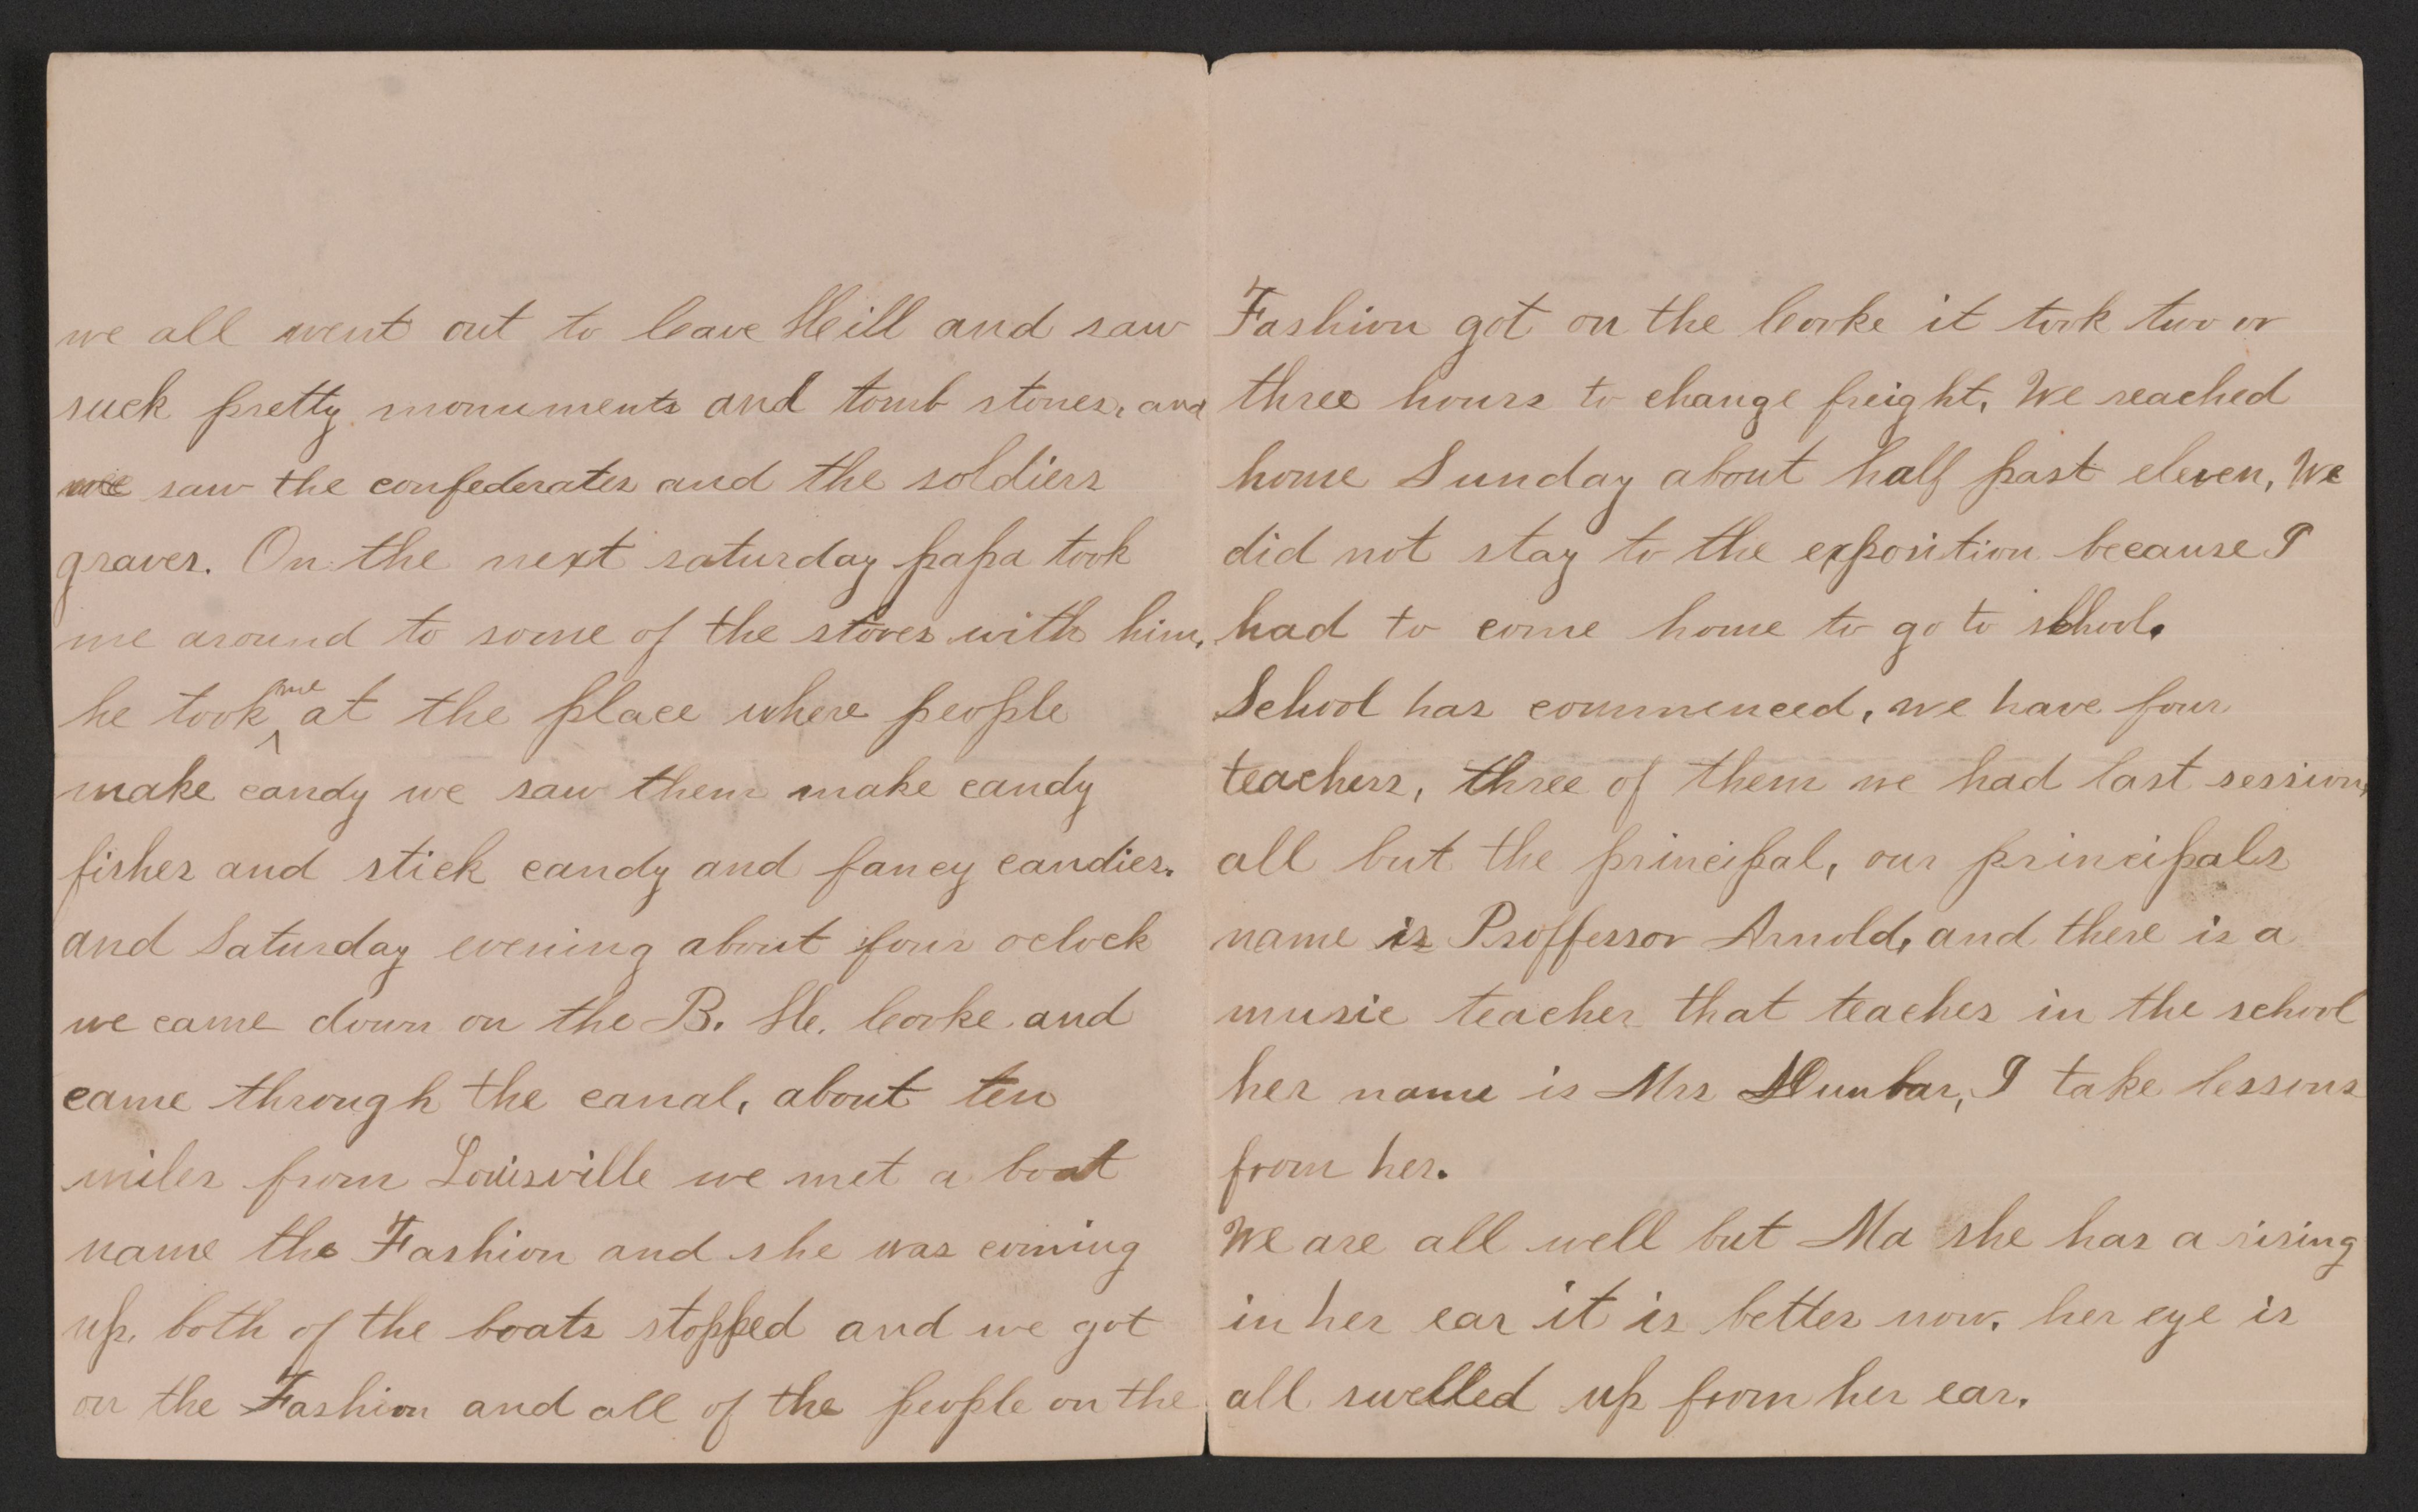 we all went out to Cave Hill and saw
such pretty monuments and tomb stones, and
we saw the confederates and the soldiers
graves. On the next saturday papa took
me around to some of the stores with him,
he took me at the place where people
make candy we saw them make candy
fishes and stick candy and fancy candies.
and Saturday evening about four oclock
we came down on the B. H. Cooke and
came through the canal, about ten
miles from Louisville we met a boat
name the Fashion and she was coming
up, both of the boats stopped and we got
on the Fashion and all of the people on the
Fashion got on the Cooke it took two or
three hours to change freight, We reached
home Sunday about half past eleven, We
did not stay to the exposition because I
had to come home to go to school.
School has commenced, we have four
teachers, three of them we had last session,
all but the principal, our principals
name is Proffessor Arnold, and there is a
music teacher that teaches in the school
her name is Mrs Dunbar, I take lessons
from her.
We are all well but Ma she has a rising
in her ear it is better now. her eye is
all swelled up from her ear.